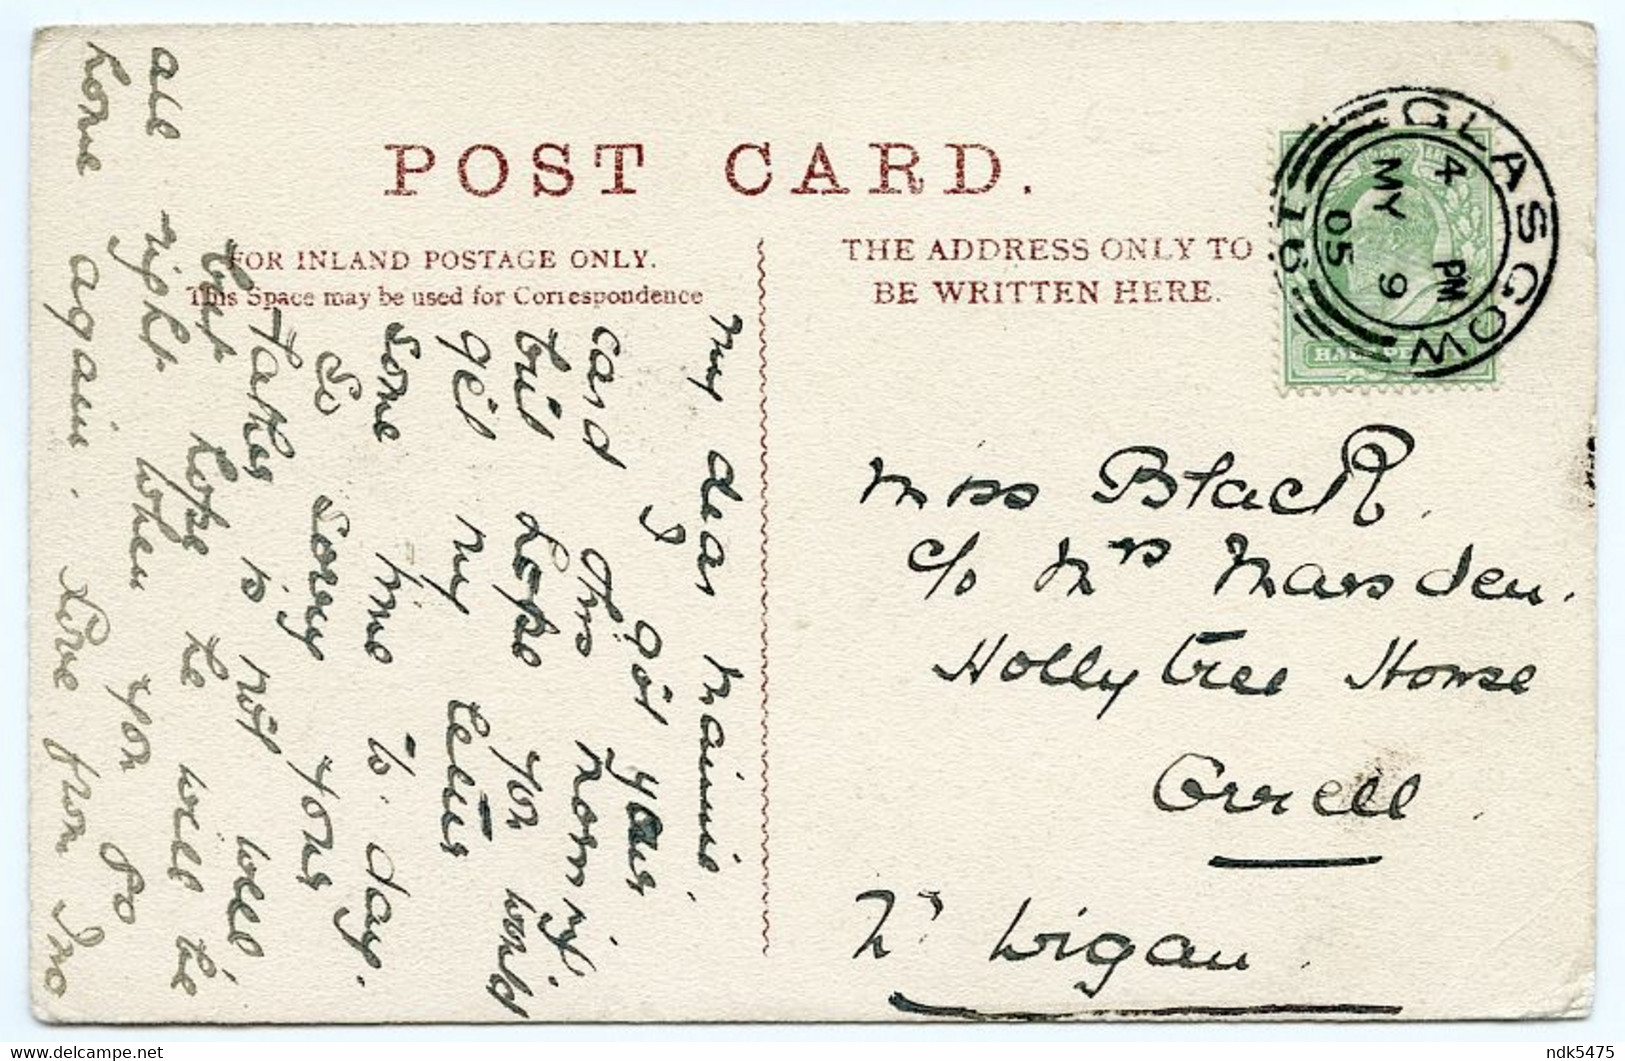 POST CARD.
FOR INLAND POSTAGE ONLY.
This Space may be used for Correspondence
THE ADDRESS ONLY TO
BE WRITTEN HERE.
GLASGOW
4 PM
MY 9
05
16
HALFPENNY
My dear Mamie,
I got your
card this morning
but hope you would
get my letter
some time to day.
So sorry your
Father is not well,
but hope he will be
all right when you go
home again. Love from Ino
Miss Black.
c/o Mrs Marsden.
Holly tree House
Orrell.
Nr Wigan.
ndk5475